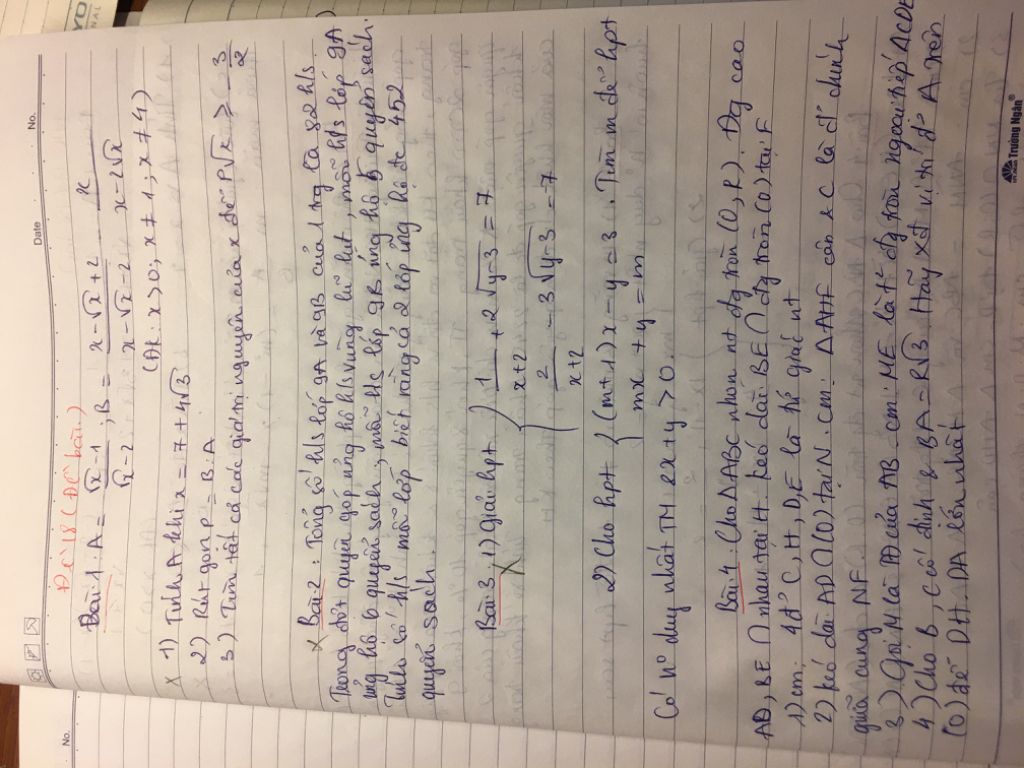 No.
Date
No.
Đề 18 (Đề bàn)
Bài 1: A = (√x - 1)/(√x - 2) ; B = (x - √x + 2)/(x - √x - 2) - x/(x - 2√x)
(ĐK: x > 0; x ≠ 1, x ≠ 4)
x 1) Tính A khi x = 7 + 4√3
2) Rút gọn P = B.A
3) Tìm tất cả các giá trị nguyên của x để P√x ≥ 3/2
x Bài 2: Tổng số h/s lớp 9A và 9B của 1 trg là 82 h/s.
Trong đợt quyên góp ủng hộ h/s vùng lũ lụt, mỗi h/s lớp 9A
ủng hộ 6 quyển sách, mỗi h/s lớp 9B ủng hộ 5 quyển sách.
Tính số h/s mỗi lớp biết rằng cả 2 lớp ủng hộ đc 452
quyển sách.
Bài 3: 1) Giải hpt { 1/(x+2) + 2√(y-3) = 7
x
2/(x+2) - 3√(y-3) = 7
2) Cho hpt { (m+1)x - y = 3. Tìm m để hpt
mx + y = m
Có n° duy nhất TM 2x + y > 0
Bài 4: Cho ΔABC nhọn nt đg tròn (O, R). Đg cao
AD, BE ∩ nhau tại H. Kéo dài BE ∩ đg tròn (O) tại F
1) cm: 4 đ' C, H, D, E là tứ giác nt
2) kéo dài AD ∩ (O) tại N. cm: ΔAHF cân & C là đ' chính
giữa cung NF
3) Gọi M là TĐ của AB cm: ME là t² đg tròn ngoại tiếp ΔCDE
4) Cho B, C cố định & BA = R√3. Hãy xđ vị trí đ' A trên
(O) để DH.DA lớn nhất
Trường Ngân®